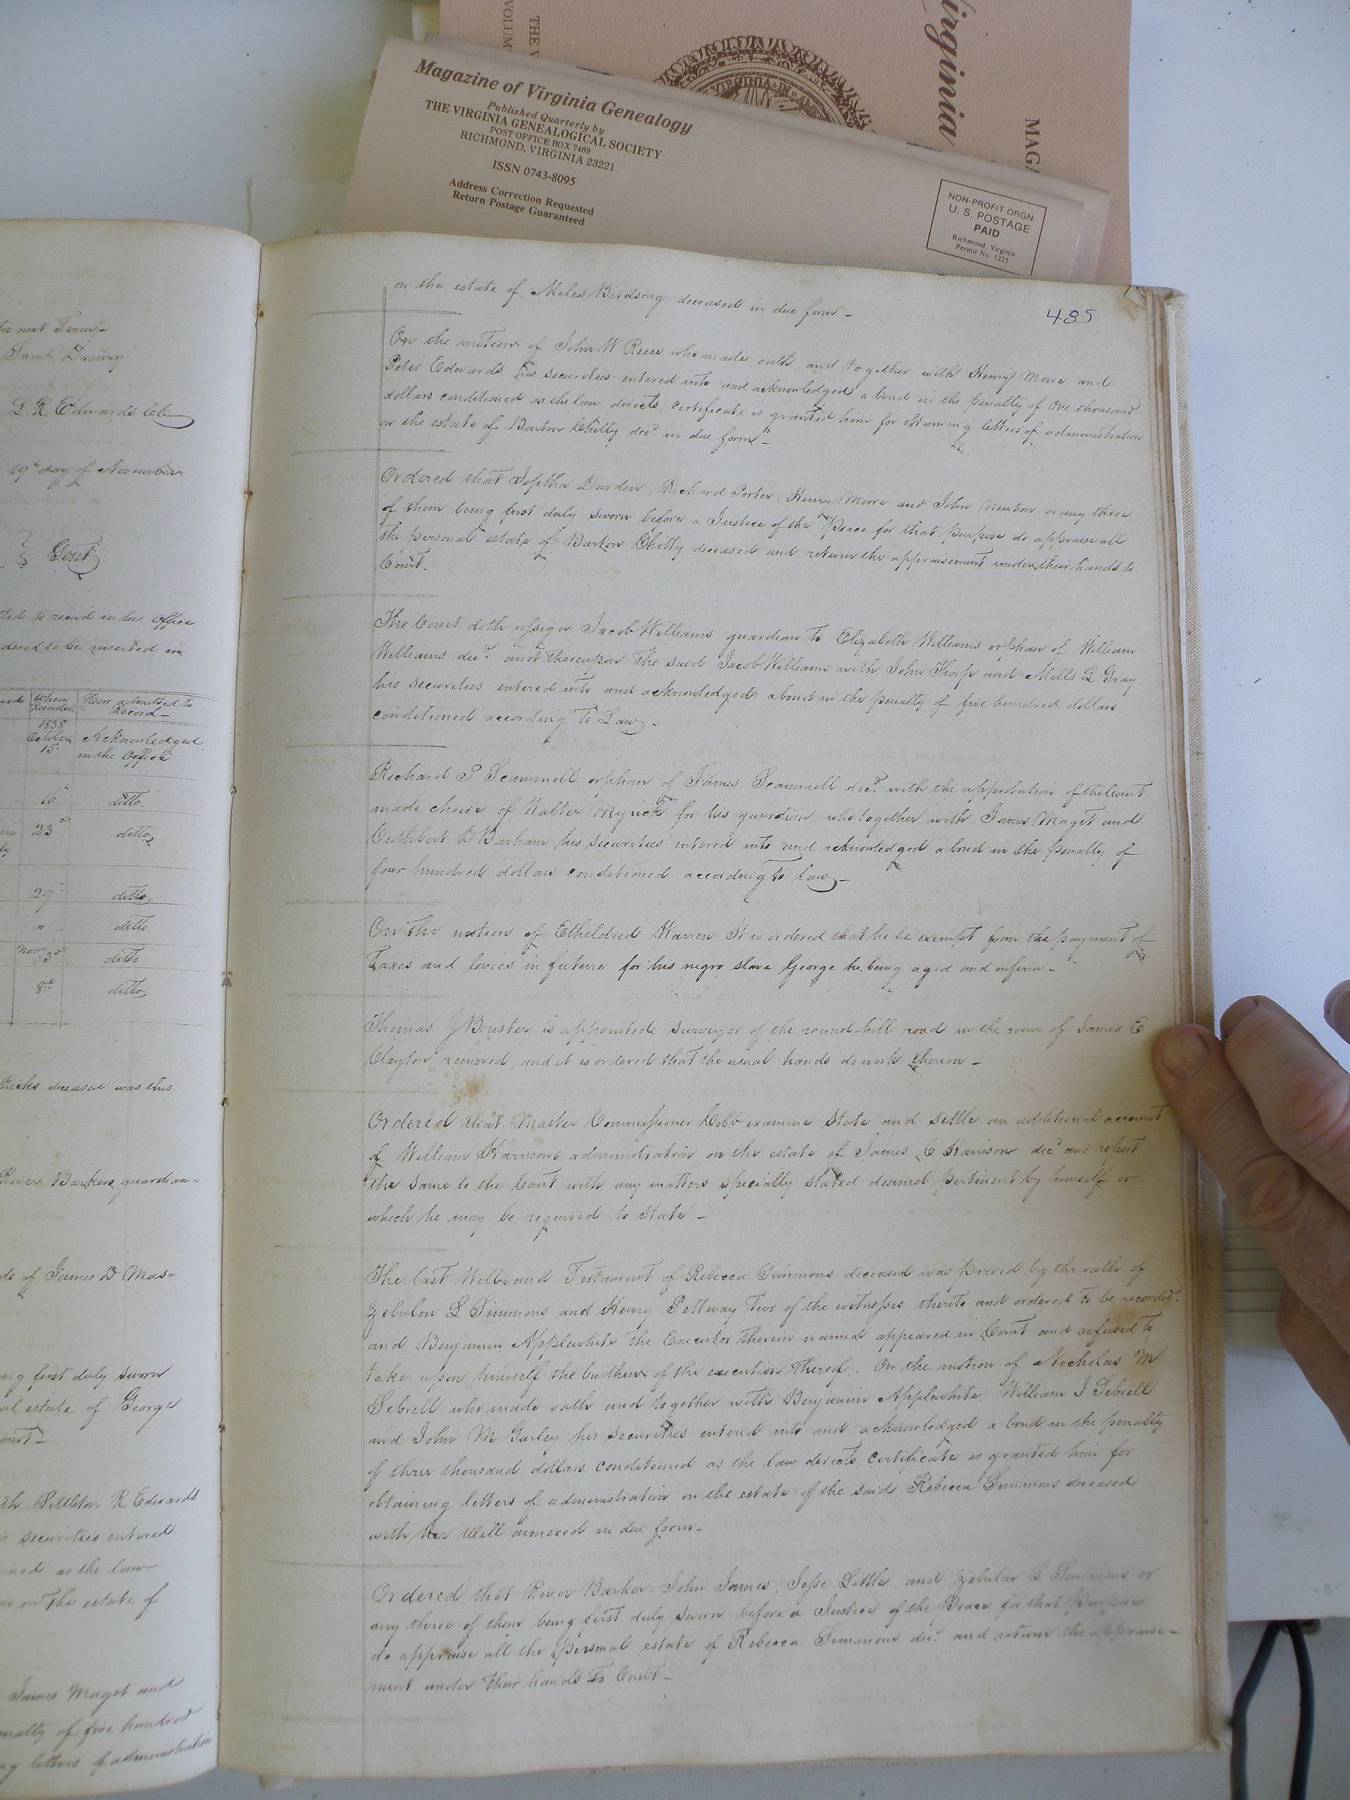 Virginia
MAGA
THE V
VOLUM
VIRGINIA
Magazine of Virginia Genealogy
Published Quarterly by
THE VIRGINIA GENEALOGICAL SOCIETY
POST OFFICE BOX 7469
RICHMOND, VIRGINIA 23221
ISSN 0743-8095
Address Correction Requested
Return Postage Guaranteed
NON-PROFIT ORGN
U. S. POSTAGE
PAID
Richmond, Virginia
Permit No. 1225
next Term-
L R Edwards Clk
19th day of November
Gent
to record in his Office
dered to be inserted in
when Recorded
How admitted to Record-
1838
October 15
Acknowledged in the Office
16
ditto
23
ditto
29
ditto
"
ditto
Nov 3d
ditto
8th
ditto
deceased was this
Barkers guardian=
ds of James D Mas=
ng first duly sworn
al estate of George
ourt-
Littleton R Edwards
securities entered
ned as the law
on the estate of
James Maget and
nalty of five hundred
ng letters of administration
485
on the estate of Miles Birdsong deceased in due form-
On the motion of John W Reese who made oath and together with Henry Moore and
Peter Edwards his securities entered into and acknowledged a bond in the penalty of One thousand
dollars conditioned as the law directs, certificate is granted him for obtaining letters of administration
on the estate of Barton Chitty decd in due form-
Ordered that Jeptha Darden, Richard Porter, Henry Moore and John Newton or any three
of them being first duly sworn before a Justice of the Peace for that purpose do appraise all
the personal estate of Barton Chitty deceased and return the appraisement under their hands to
Court.
The Court doth assign Jacob Williams guardian to Elizabeth Williams orphan of William
Williams decd. and thereupon the said Jacob Williams with John Thorp and Mills L Gray
his securities entered into and acknowledged a bond in the penalty of five hundred dollars
conditioned according to Law-
Richard P Scammell orphan of James Scammell decd with the approbation of the Court
made choice of Walter Myrick for his guardian who together with James Maget and
Cuthbert D Barham his securities entered into and acknowledged a bond in the penalty of
four hundred dollars conditioned according to law-
On the motion of Etheldred Warren It is ordered that he be exempt from the payment of
Taxes and levies in future for his negro slave George he being aged and infirm-
Thomas J Bruster is appointed surveyor of the round hill road in the room of James E
Clayton removed, and it is ordered that the usual hands do work thereon-
Ordered that Master Commissioner Cobb examine State and settle an additional account
of William Harrisons administration on the estate of James C Harrison decd and report
the same to the Court with any matters specially stated deemed pertinent by himself or
which he may be required to state-
The last Will and Testament of Rebecca Simmons deceased was proved by the oaths of
Zebulon L Simmons and Henry Pettway Two of the witnesses thereto and ordered to be recorded
and Benjamin Applewhite the Executor therein named appeared in Court and refused to
take upon himself the burthen of the execution thereof. On the motion of Nicholas M
Sebrell who made oath and together with Benjamin Applewhite, William J Sebrell
and John M Gurley his securities entered into and acknowledged a bond in the penalty
of three thousand dollars conditioned as the law directs certificate is granted him for
obtaining letters of administration on the estate of the said Rebecca Simmons deceased
with her Will annexed in due form-
Ordered that Barker, John James, Jesse Little and Zebulon L Simmons or
any three of them being first duly sworn before a Justice of the Peace for that purpose
do appraise all the personal estate of Rebecca Simmons decd and return the appraise-
ment under their hands to Court-